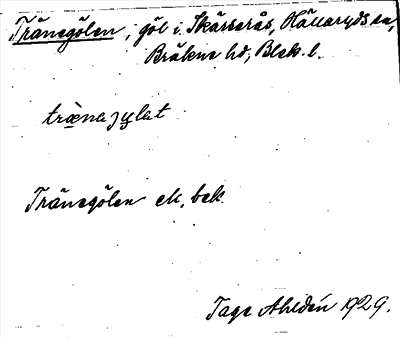 Tränegölen, göl i Skärserås, Hällaryds sn,
Bräkne hd, Blek. l.
træ̀naʒylət
Tränegölen ek. bek.
Tage Ahldén 1929.